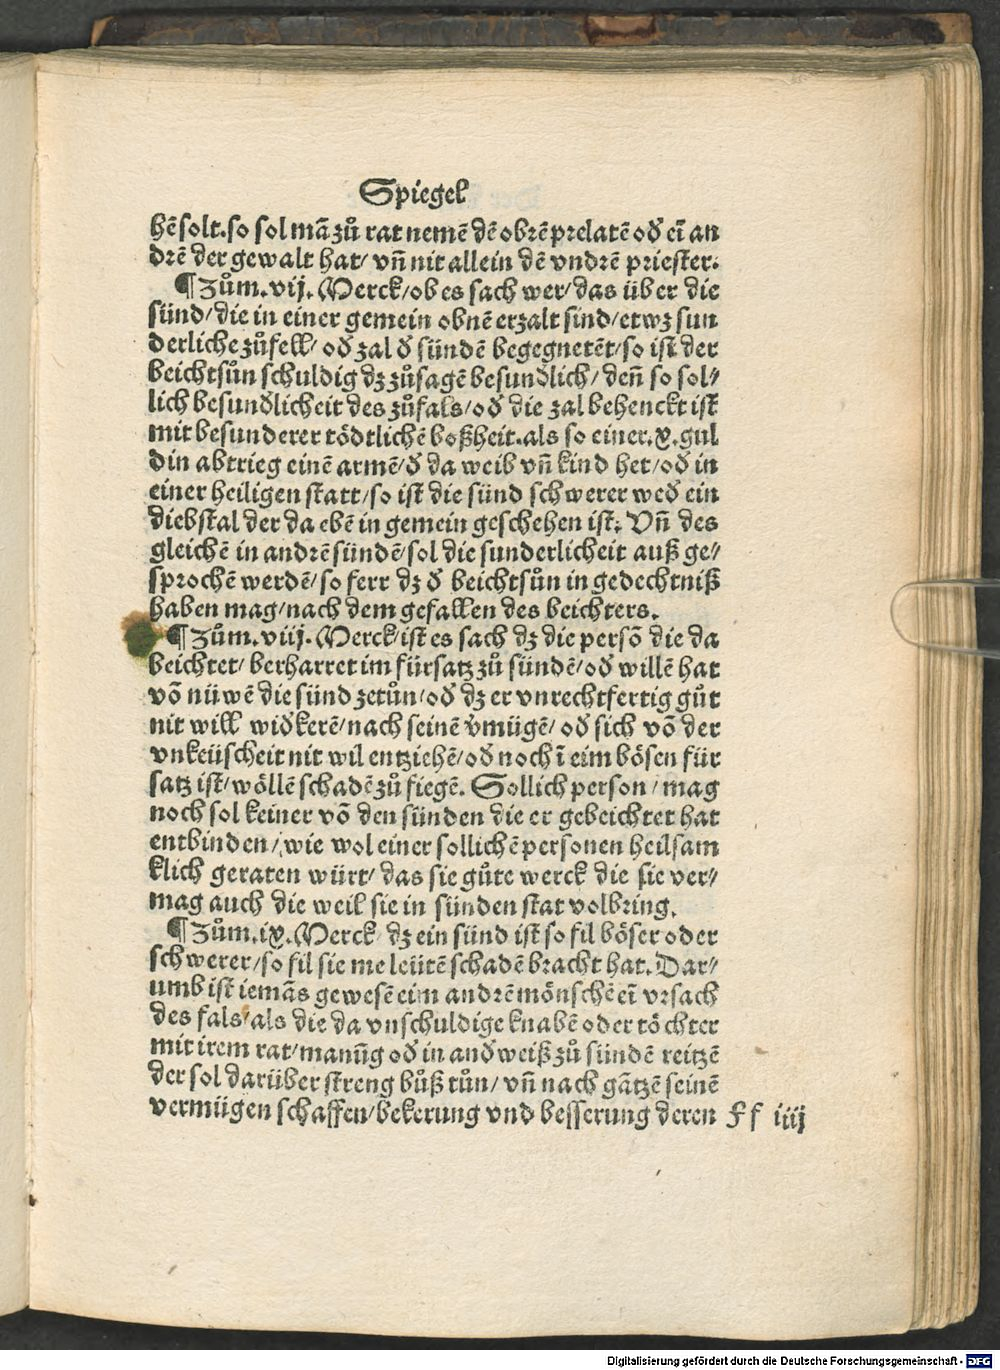 Spiegel
hē solt. so sol mā zů rat nemē dē obrē prelatē oď eī an
drē der gewalt hat/ vn̄ nit allein dē vndrē priester.
¶Zům. vij. Merck/ ob es sach wer/ das über die
sünd/ die in einer gemein obnē erzalt sind/ etwz sun
derliche zůfell/ oď zal ď sündē begegnetēt/ so ist der
beichtsůn schuldig dz zůsagē besunďlich/ den̄ so sol⸗
lich besunďlicheit des zůfals/ oď die zal behenckt ist
mit besunderer tödtlichē boßheit. als so einer. x. gul
din abtrieg einē armē/ ď da weib vn̄ kind het/ oď in
einer heiligen statt/ so ist die sünd schwerer weď ein
diebstal der da ebē in gemein geschehen ist. Vn̄ des
gleichē in andrē sündē/ sol die sunderlicheit auß ge⸗
sprochē werdē/ so ferr dz ď beichtsůn in gedechtniß
haben mag/ nach dem gefallen des beichters.
¶Zům. viij. Merck/ ist es sach dz die persō die da
beichtet/ berharret im fürsatz zů sündē/ oď willē hat
vō nüwē die sünd zetůn/ oď dz er vnrechtfertig gůt
nit will wiďkerē/ nach seinē v̄mügē/ oď sich vō der
vnkeüscheit nit wil entziehē/ oď noch ī eim bösen für
satz ist/ wöllē schadē zů fiegē. Sollich person/ mag
noch sol keiner vō den sünden die er gebeichtet hat
entbinden/ wie wol einer sollichē personen heilsam
klich geraten würt/ das sie gůte werck die sie ver⸗
mag auch die weil sie in sünden stat volbring.
¶Zům. ix. Merck/ dz ein sünd ist so fil böser oder
schwerer/ so fil sie me leütē schadē bracht hat. Dar⸗
umb ist iemās gewesē eim andrē mönschē eī vrsach
des fals/ als die da vnschuldige knabē oder töchter
mit irem rat/ manūg oď in anď weiß zů sündē reitzē
der sol darüber streng bůß tůn/ vn̄ nach gātzē seinē
vermügen schaffen/ bekerung vnd besserung deren Ff iiij
Digitalisierung gefördert durch die Deutsche Forschungsgemeinschaft - DFG